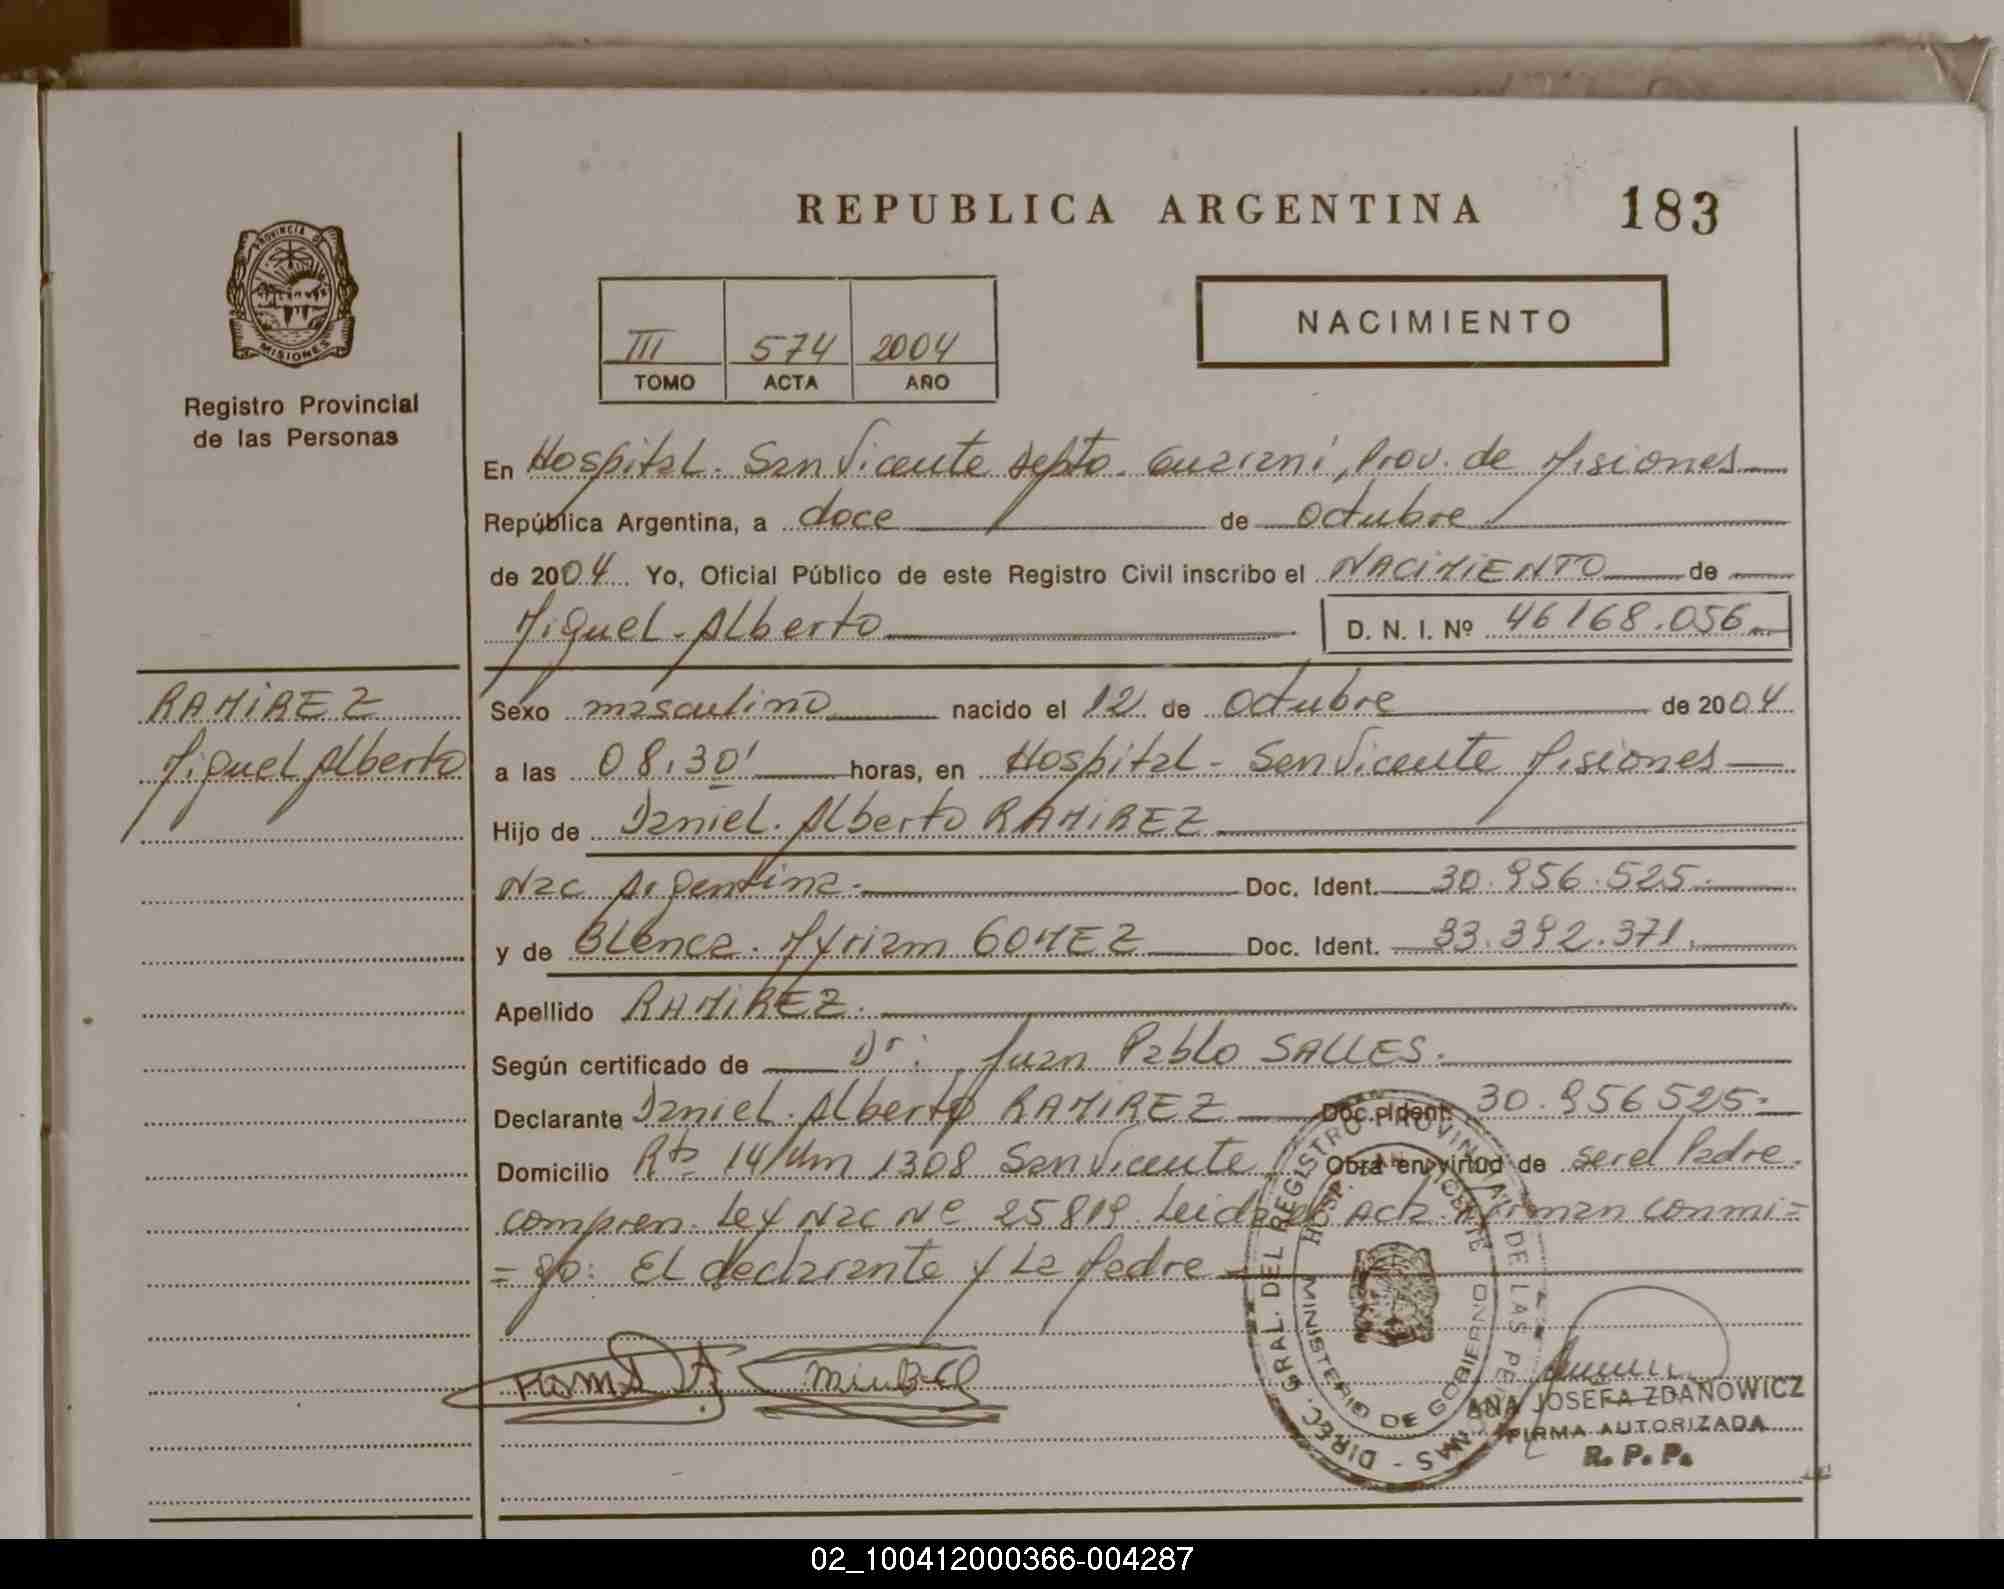 REPUBLICA ARGENTINA 183
PROVINCIA DE
MISIONES
Registro Provincial
de las Personas
III 574 2004
TOMO ACTA AÑO
NACIMIENTO
En Hospital. San Vicente Depto. Guaraní, Prov. de Misiones
República Argentina, a doce de octubre
de 2004 Yo, Oficial Público de este Registro Civil inscribo el NACIMIENTO de
Miguel Alberto D. N. I. Nº 46168.056
RAMIREZ
Miguel Alberto
Sexo masculino nacido el 12 de Octubre de 2004
a las 08,30' horas, en Hospital - San Vicente Misiones
Hijo de Daniel. Alberto RAMIREZ
Nac Argentina. Doc. Ident. 30.956.525.
y de Blanca. Myriam GOMEZ Doc. Ident. 33.392.371.
Apellido RAMIREZ.
Según certificado de Dr: Juan Pablo SALLES.
Declarante Daniel. Alberto RAMIREZ Doc. Ident. 30.956525.
Domicilio Rta 14/Km 1308 San Vicente Obra en virtud de ser el Padre.
compren. Ley Nac Nº 25819. Leida el Acta. Firman conmi=
=go: El declarante y La Madre
DIREC. GRAL. DEL REGISTRO PROVINCIAL DE LAS PERSONAS - MINISTERIO DE GOBIERNO
HOSP. SAN VICENTE
ANA JOSEFA ZDANOWICZ
FIRMA AUTORIZADA
R. P. P.
02_100412000366-004287